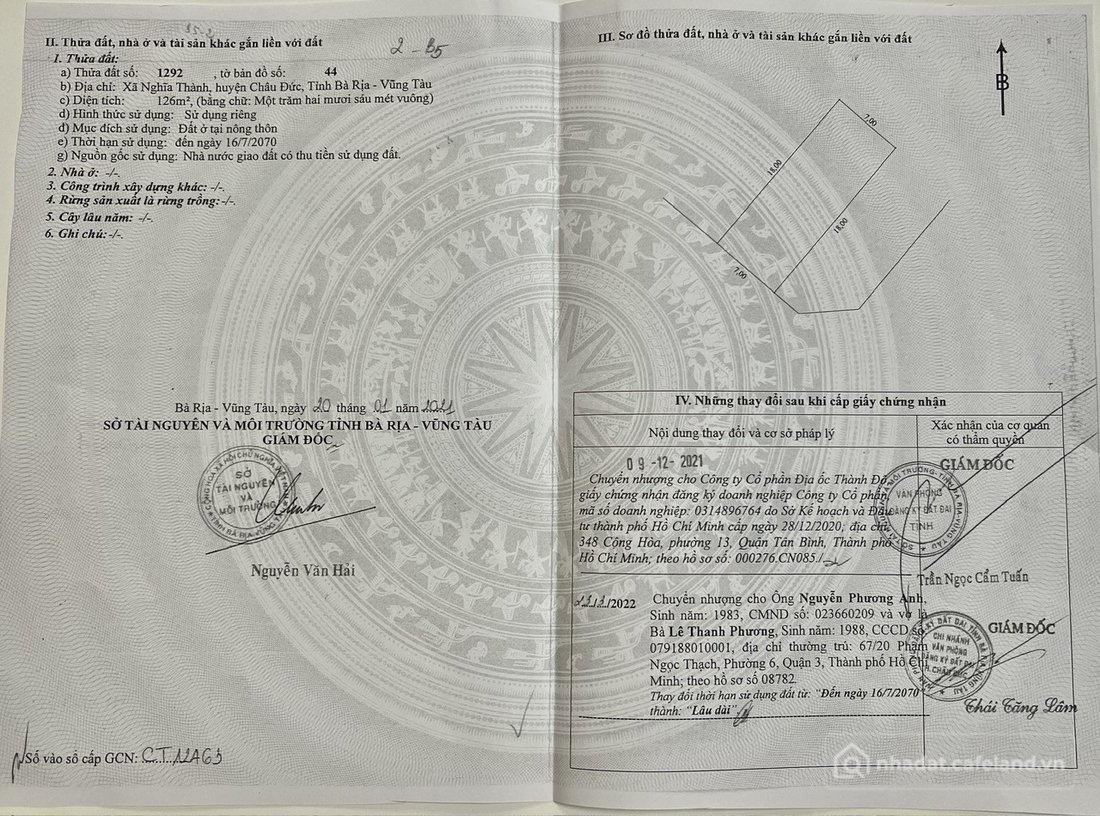 2 - B5
II. Thửa đất, nhà ở và tài sản khác gắn liền với đất
1. Thửa đất:
a) Thửa đất số: 1292 , tờ bản đồ số: 44
b) Địa chỉ: Xã Nghĩa Thành, huyện Châu Đức, Tỉnh Bà Rịa - Vũng Tàu
c) Diện tích: 126m², (bằng chữ: Một trăm hai mươi sáu mét vuông)
d) Hình thức sử dụng: Sử dụng riêng
đ) Mục đích sử dụng: Đất ở tại nông thôn
e) Thời hạn sử dụng: đến ngày 16/7/2070
g) Nguồn gốc sử dụng: Nhà nước giao đất có thu tiền sử dụng đất.
2. Nhà ở: -/-.
3. Công trình xây dựng khác: -/-.
4. Rừng sản xuất là rừng trồng: -/-.
5. Cây lâu năm: -/-.
6. Ghi chú: -/-.
Bà Rịa - Vũng Tàu, ngày 20 tháng 01 năm 2021
SỞ TÀI NGUYÊN VÀ MÔI TRƯỜNG TỈNH BÀ RỊA - VŨNG TÀU
GIÁM ĐỐC
CỘNG HÒA XÃ HỘI CHỦ NGHĨA VIỆT NAM
SỞ
TÀI NGUYÊN
VÀ
MÔI TRƯỜNG
TỈNH BÀ RỊA - VŨNG TÀU
Nguyễn Văn Hải
Số vào sổ cấp GCN: CT12463
III. Sơ đồ thửa đất, nhà ở và tài sản khác gắn liền với đất
B
7,00
18,00
18,00
7,00
IV. Những thay đổi sau khi cấp giấy chứng nhận
Nội dung thay đổi và cơ sở pháp lý
Xác nhận của cơ quan
có thẩm quyền
09-12-2021
Chuyển nhượng cho Công ty Cổ phần Địa ốc Thành Đô
giấy chứng nhận đăng ký doanh nghiệp Công ty Cổ phần
mã số doanh nghiệp: 0314896764 do Sở Kế hoạch và Đầu
tư thành phố Hồ Chí Minh cấp ngày 28/12/2020; địa chỉ:
348 Cộng Hòa, phường 13, Quận Tân Bình, Thành phố
Hồ Chí Minh; theo hồ sơ số: 000276.CN085./.
GIÁM ĐỐC
VĂN PHÒNG
ĐĂNG KÝ ĐẤT ĐAI
TỈNH
Trần Ngọc Cẩm Tuấn
/2022
Chuyển nhượng cho Ông Nguyễn Phương Anh,
Sinh năm: 1983, CMND số: 023660209 và vợ là
Bà Lê Thanh Phương, Sinh năm: 1988, CCCD số
079188010001, địa chỉ thường trú: 67/20 Phạm
Ngọc Thạch, Phường 6, Quận 3, Thành phố Hồ Chí
Minh; theo hồ sơ số 08782.
Thay đổi thời hạn sử dụng đất từ: "Đến ngày 16/7/2070"
thành: "Lâu dài"
GIÁM ĐỐC
CHI NHÁNH
VĂN PHÒNG
ĐĂNG KÝ ĐẤT ĐAI
H. CHÂU ĐỨC
Thái Tăng Lâm
nhadat.cafeland.vn